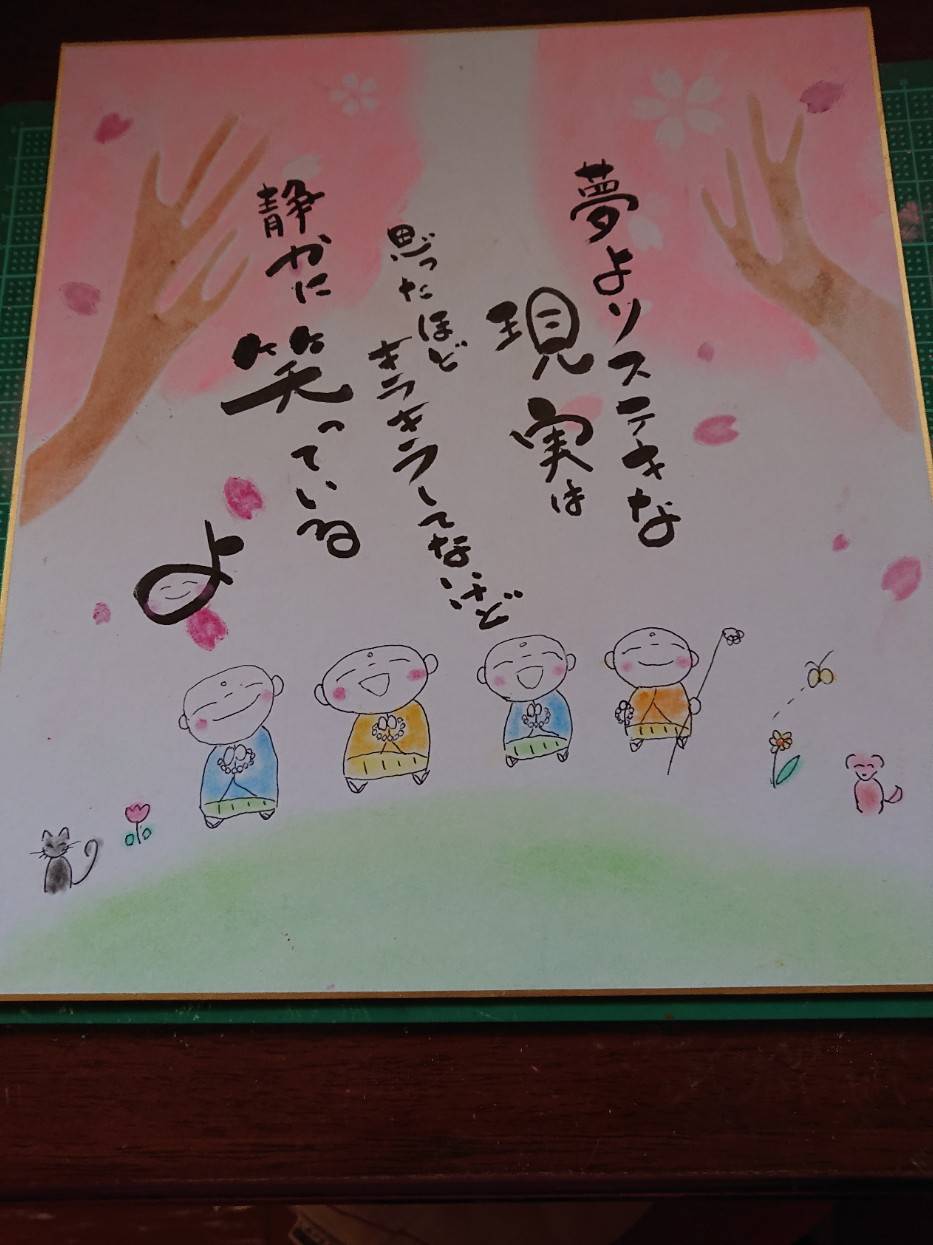 夢よりステキな
現実は
思ったほど
キラキラしてないけど
静かに
笑っている
よ